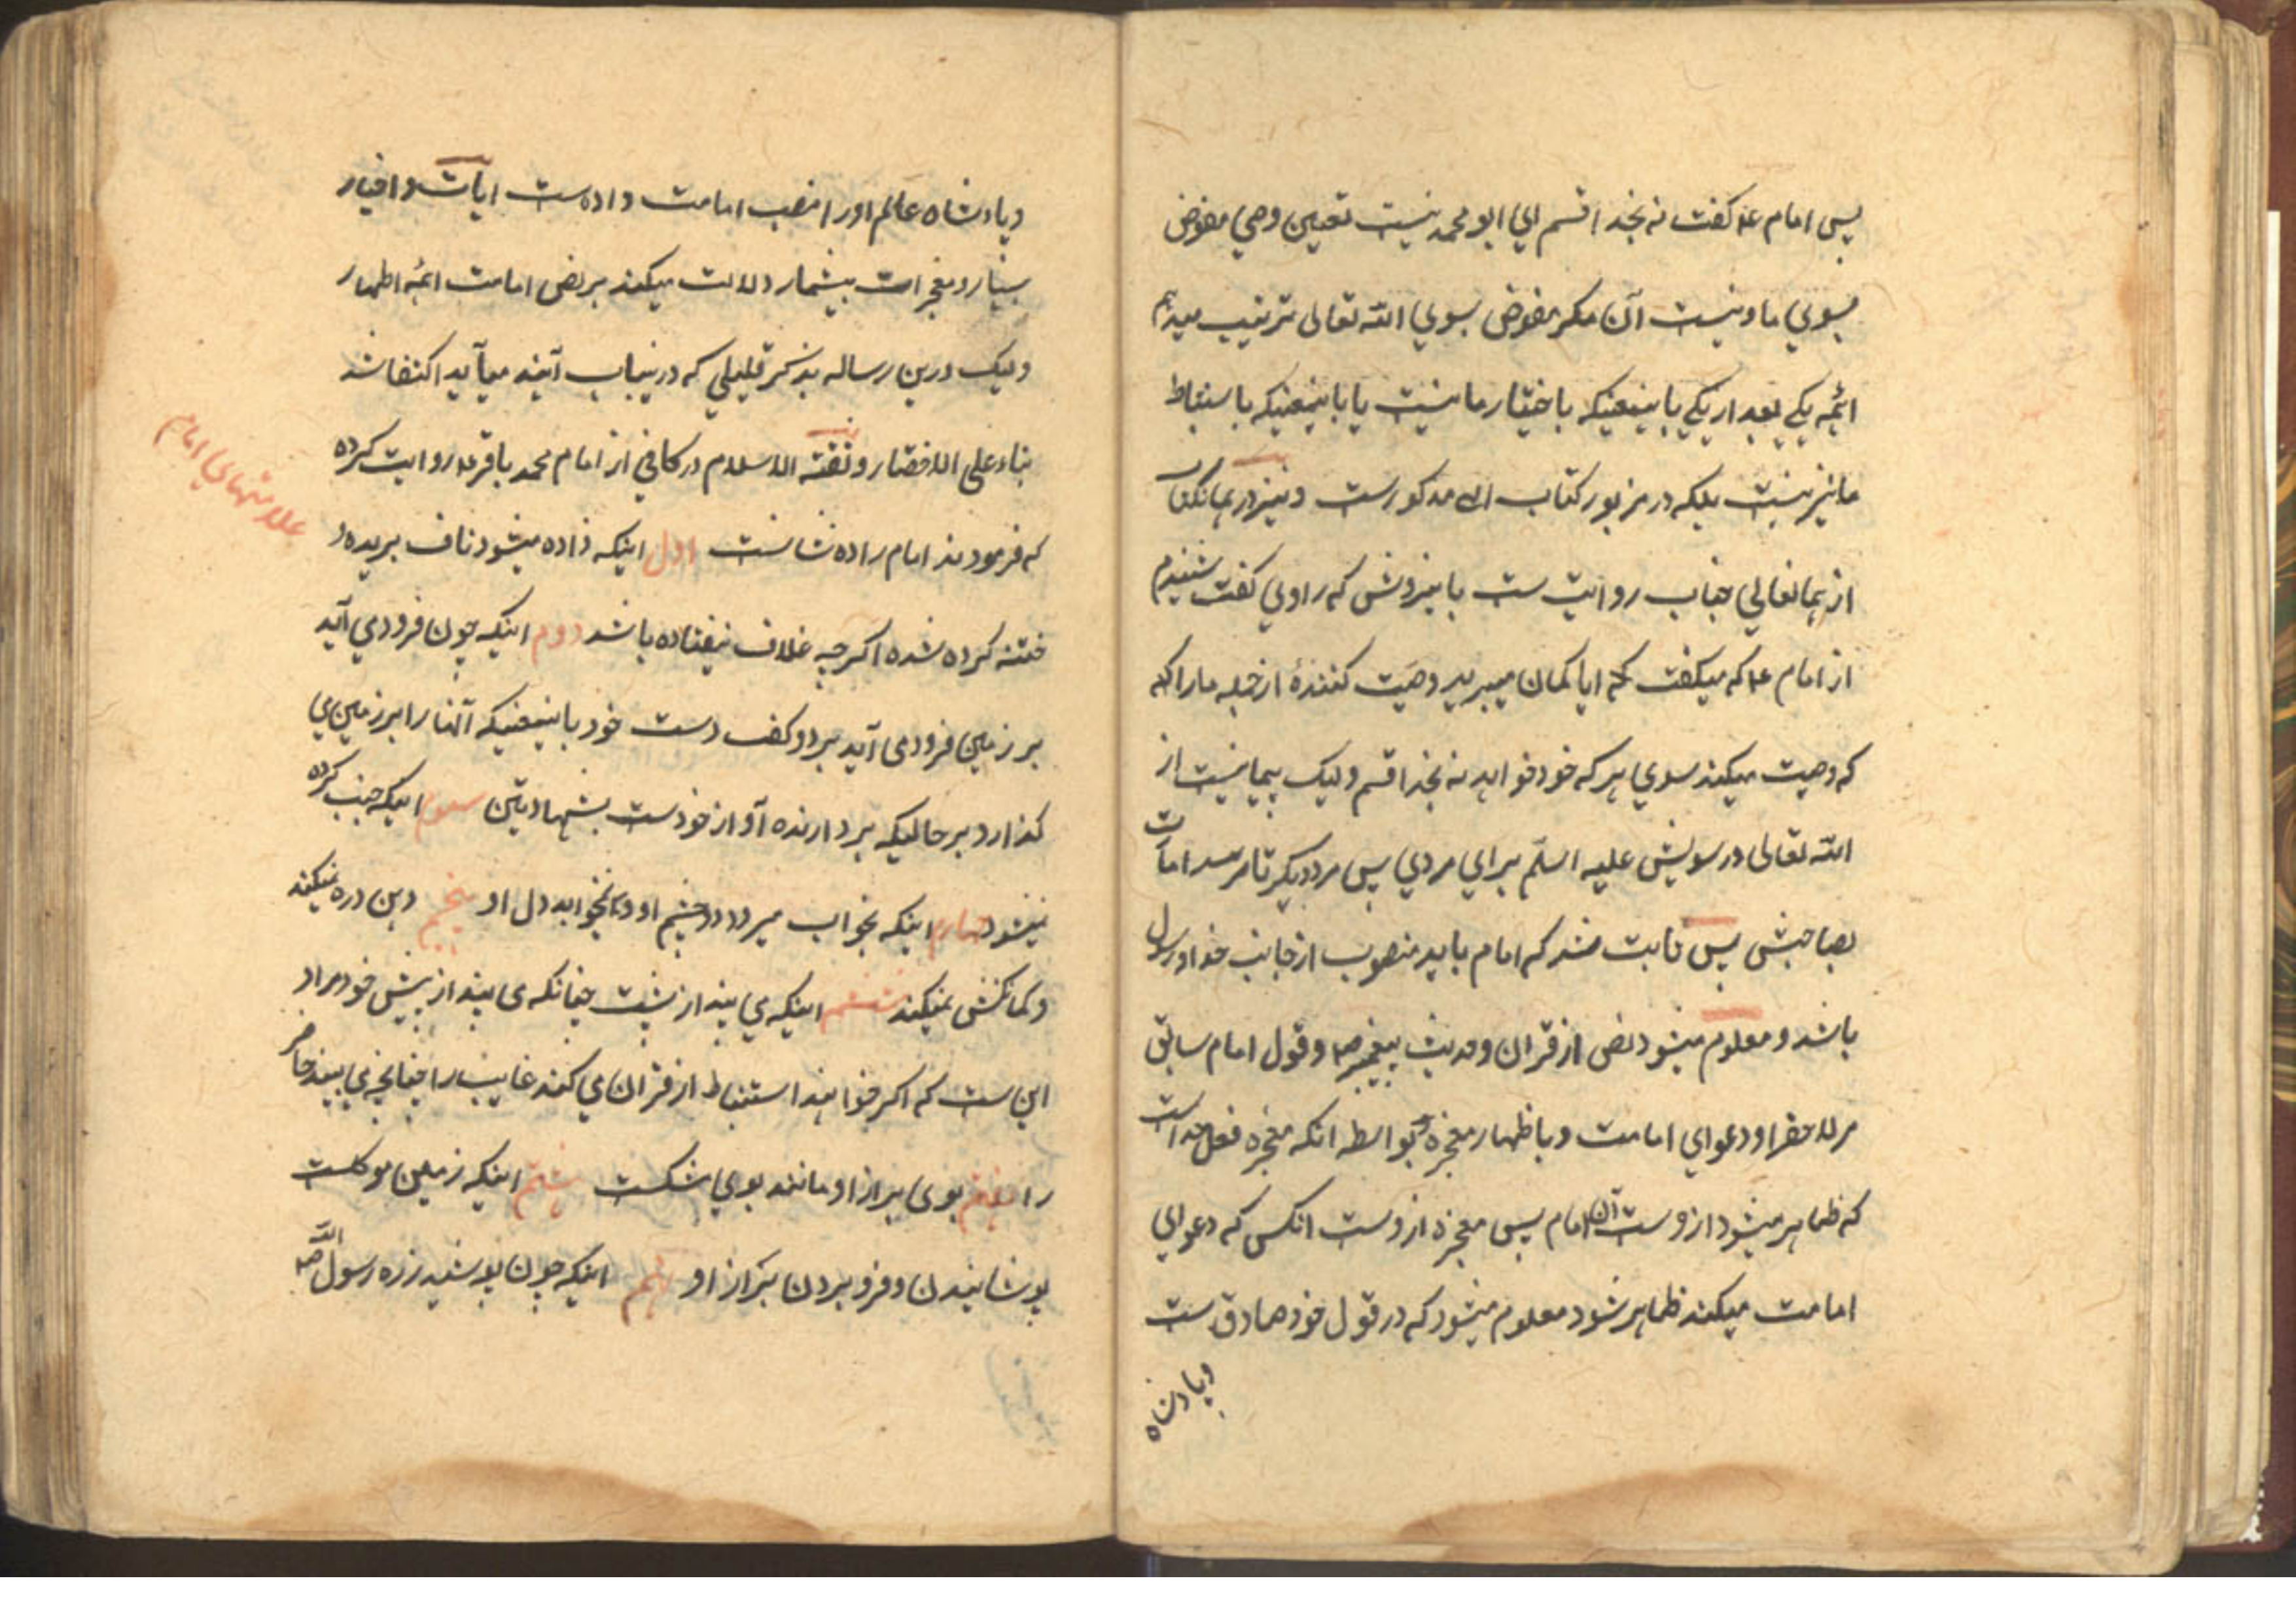 پس امام ع گفت نه بخدا قسم ای ابو محمد نیست تعیین وصی مفوض
بسوی ما و نیست آن مگر مفوض بسوی الله تعالی ترتیب میدهم
ائمه یکی بعد از یکی یا باینمعنیکه باختیار ما نیست یا باینمعنیکه باستنباط
ما نیز نیست بلکه در مزبور کتاب الله مذکورست و نیز در همانکتاب
از همانعالی جناب روایت ست باینروش که راوی گفت شنیدم
از امام ع که میگفت که ایا گمان میبرید وصیت کنندۀ از جمله ما را که
که وصیت میکند سوی هر که خود خواهد نه بخدا قسم ولیک پیمانیست از
الله تعالی و رسولش علیه السلم برای مردی پس مرد دیگر تا رسد امامت
بصاحبش پس ثابت شد که امام باید منصوب از جانب خدا و رسول
باشد و معلوم میشود نص از قران و حدیث پیغمبر ص و قول امام سابق
مر لاحق را و دعوای امامت و باظهار معجزه و بواسطه انکه معجزه فعل خداست
که ظاهر میشود از دست آن امام پس معجزه از دست انکس که دعوای
امامت میکند ظاهر شود معلوم میشود که در قول خود صادق ست
و پادشاه
و پادشاه عالم او را منصب امامت داده ست ایات و اخبار
بسیار و معجزات بیشمار دلالت میکند بر نص امامت ائمه اطهار
ولیک درین رساله بذکر قلیلی که درینباب آیند میآید اکتفا شد
بناء علی الاختصار و ثقة الاسلام در کافی از امام محمد باقر ع روایت کرده
علامتهای امام
که فرمودند امام را ده نشانست اول اینکه زاده میشود ناف بریده و
ختنه کرده شده اگرچه غلاف نیفتاده باشد دوم اینکه چون فرود می آید
بر زمین فرود می آید بر دو کف دست خود باینمعنیکه آنها را بر زمین می
گذارد بر حالیکه بردارنده آواز خودست بشهادتین سیوم اینکه جنب کرده
نمیشود چهارم اینکه بخواب میرود دو چشم او و نخوابد دل او پنجم دهن دره نمیکند
و کمانکشی نمیکند ششم اینکه می بیند از پشت چنانکه می بیند از پیش خود مراد
این ست که اگر خواهند استنباط از قران می کنند غایب را چنانچه می بیند حاضر
را هفتم بوی براز او مانند بوی مشکست هشتم اینکه زمین موکلست
پوشانیدن و فرو بردن براز او نهم اینکه چون پوشید زره رسول الله ص